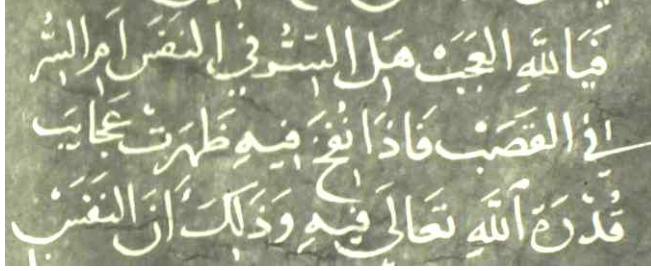 فَيَا للَّهِ العَجَبَ هَلِ السِّرُّ فِي النَفَسِ اَمِ السِّرُّ
فِي القَصَبْ فَاذَا نُفِخَ فِيهِ ظَهَرَتْ عَجَايبَ
قُدْرَةِ ٱللَّهِ تَعَالَى فِيهِ وَذَلِكَ أَنَ النَفَسَ